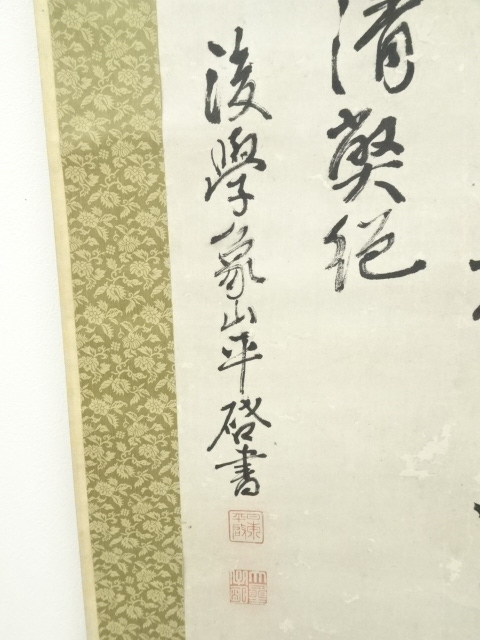 清獘絕
後學象山平啓書